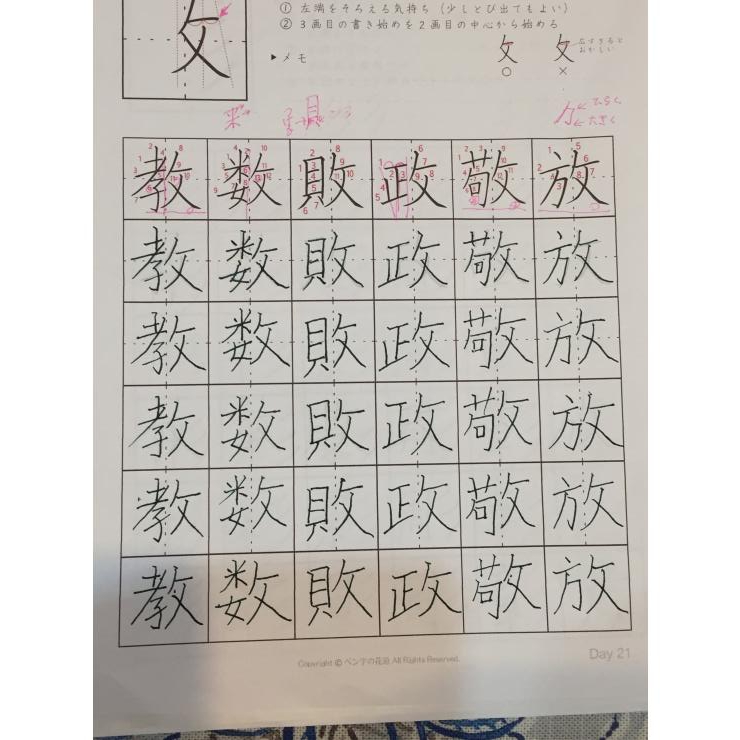 攵
① 左端をそろえる気持ち（少しとび出てもよい）
② 3画目の書き始めを2画目の中心から始める
▶メモ
攵 攵
○ ×
教 数 敗 政 敬 放
教 数 敗 政 敬 放
教 数 敗 政 敬 放
教 数 敗 政 敬 放
教 数 敗 政 敬 放
教 数 敗 政 敬 放
Copyright © ペン字の花道 All Rights Reserved.
Day 21